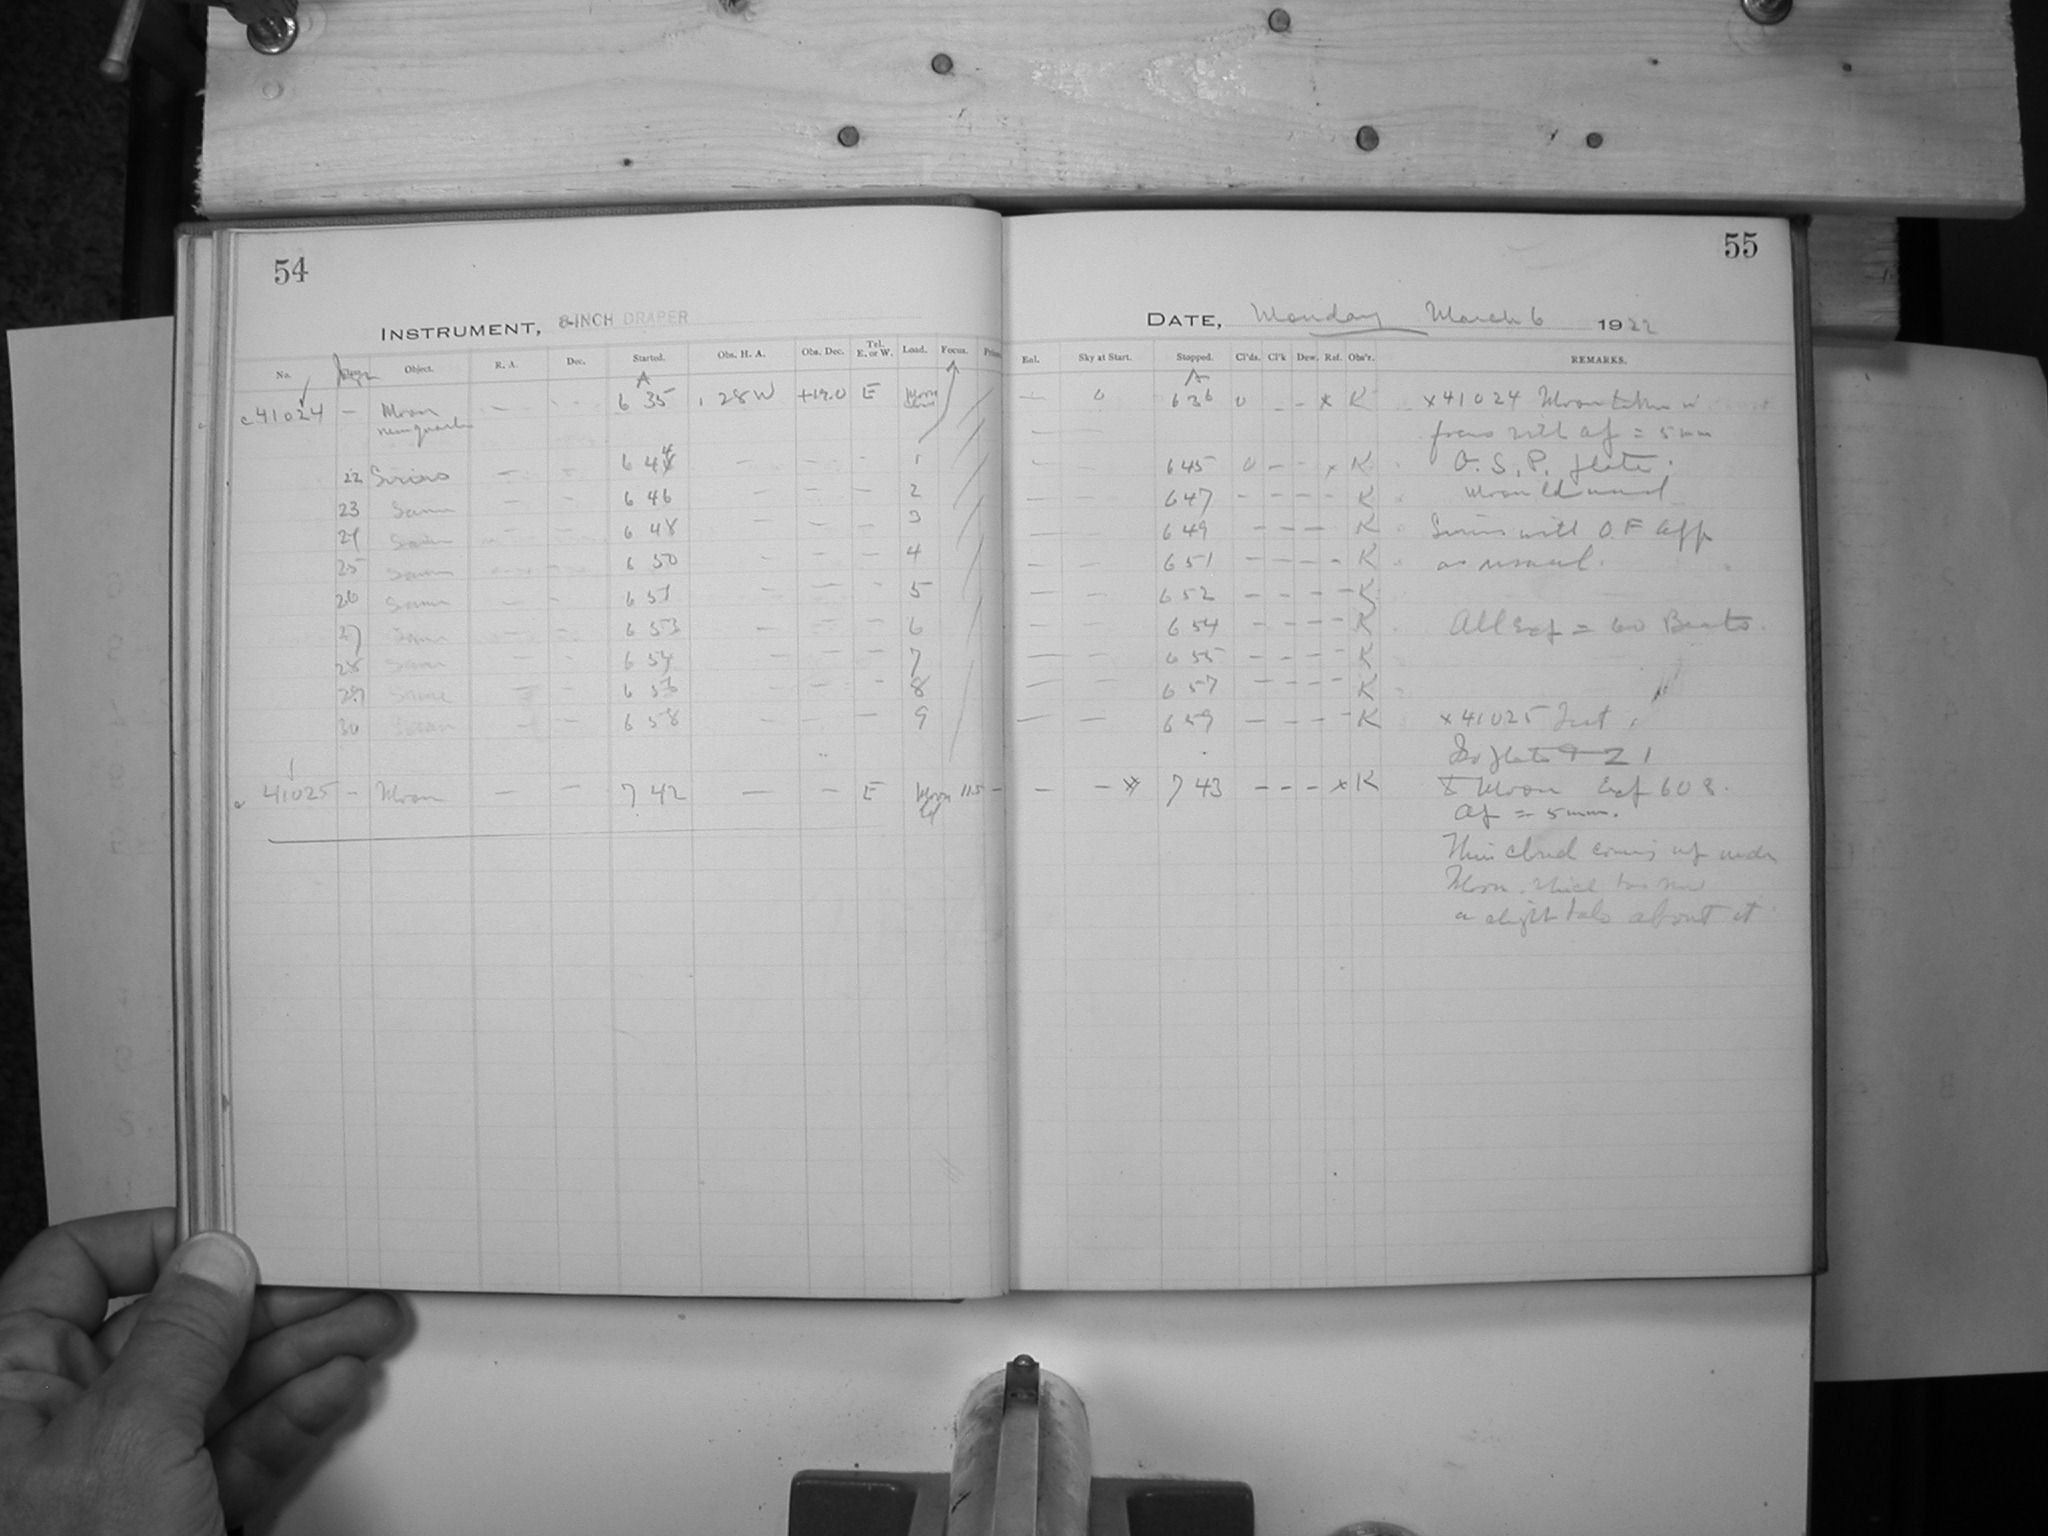 54
INSTRUMENT, 8-INCH DRAPER
No. Object. R. A. Dec. Started. Obs. H. A. Obs. Dec. Tel. E. or W. Load. Focus.
A
c 41024 — Moon — — 6 35 1 28 W +19.0 E Moon
22 Sirius — — 6 44 — — - 1
23 Same — — 6 46 — — — 2
24 Same — — 6 48 — — — 3
25 Same — — 6 50 — — — 4
26 Same — — 6 51 — — - 5
27 Same — — 6 53 — — — 6
28 Same — — 6 54 — — — 7
29 Same — — 6 56 — — - 8
30 Same — — 6 58 — — — 9
c 41025 — Moon — — 7 42 — — E Moon 11.5 —
55
DATE, Monday March 6 1922
Enl. Sky at Start. Stopped. Cl'ds. Cl'k Dew. Ref. Obs'r. REMARKS.
A
— 0 6 36 0 - - x K x 41024 Moon taken in
focus with af = 5 mm
— 6 45 0 - - x K O. S. P. plate.
— — 6 47 - - - - K Moon
— — 6 49 - - - K Sirius with O. F
— — 6 51 - - - - K as usual.
— — 6 52 - - - - K
— — 6 54 - - - - K All Exp = 60 Beats.
— — 6 55 - - - - K
— — 6 57 - - - - K
— — 6 59 - - - - K x 41025 Test
plate 9 - 21
— — x 7 43 - - - x K & Moon Exp 60 s.
af = 5 mm.
Thin cloud coming up under
Moon. which has now
a slight halo about it